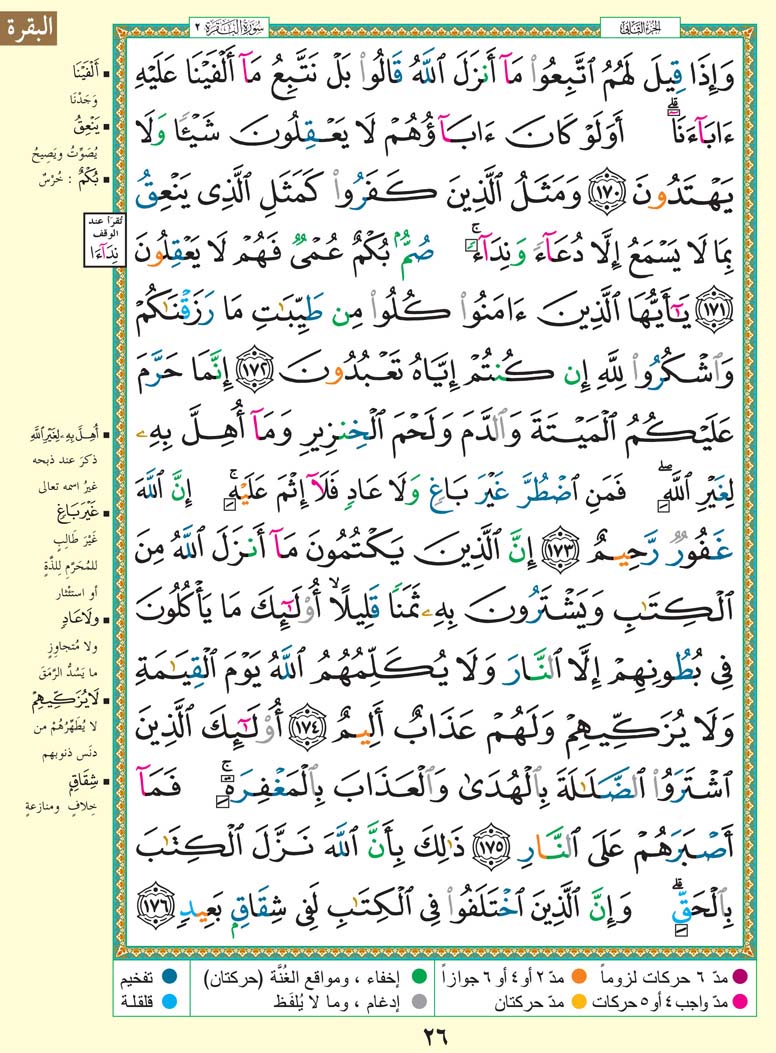 البقرة
سُورَةُ البَقَرَةِ ٢
الجزء الثاني
وَإِذَا قِيلَ لَهُمُ ٱتَّبِعُوا۟ مَآ أَنزَلَ ٱللَّهُ قَالُوا۟ بَلْ نَتَّبِعُ مَآ أَلْفَيْنَا عَلَيْهِ
ءَابَآءَنَآۗ أَوَلَوْ كَانَ ءَابَآؤُهُمْ لَا يَعْقِلُونَ شَيْـًٔا وَلَا
يَهْتَدُونَ ١٧٠ وَمَثَلُ ٱلَّذِينَ كَفَرُوا۟ كَمَثَلِ ٱلَّذِى يَنْعِقُ
بِمَا لَا يَسْمَعُ إِلَّا دُعَآءً وَنِدَآءًۚ صُمٌّۢ بُكْمٌ عُمْىٌ فَهُمْ لَا يَعْقِلُونَ
١٧١ يَـٰٓأَيُّهَا ٱلَّذِينَ ءَامَنُوا۟ كُلُوا۟ مِن طَيِّبَـٰتِ مَا رَزَقْنَـٰكُمْ
وَٱشْكُرُوا۟ لِلَّهِ إِن كُنتُمْ إِيَّاهُ تَعْبُدُونَ ١٧٢ إِنَّمَا حَرَّمَ
عَلَيْكُمُ ٱلْمَيْتَةَ وَٱلدَّمَ وَلَحْمَ ٱلْخِنزِيرِ وَمَآ أُهِلَّ بِهِۦ
لِغَيْرِ ٱللَّهِۖ فَمَنِ ٱضْطُرَّ غَيْرَ بَاغٍ وَلَا عَادٍ فَلَآ إِثْمَ عَلَيْهِۚ إِنَّ ٱللَّهَ
غَفُورٌ رَّحِيمٌ ١٧٣ إِنَّ ٱلَّذِينَ يَكْتُمُونَ مَآ أَنزَلَ ٱللَّهُ مِنَ
ٱلْكِتَـٰبِ وَيَشْتَرُونَ بِهِۦ ثَمَنًا قَلِيلًاۙ أُو۟لَـٰٓئِكَ مَا يَأْكُلُونَ
فِى بُطُونِهِمْ إِلَّا ٱلنَّارَ وَلَا يُكَلِّمُهُمُ ٱللَّهُ يَوْمَ ٱلْقِيَـٰمَةِ
وَلَا يُزَكِّيهِمْ وَلَهُمْ عَذَابٌ أَلِيمٌ ١٧٤ أُو۟لَـٰٓئِكَ ٱلَّذِينَ
ٱشْتَرَوُا۟ ٱلضَّلَـٰلَةَ بِٱلْهُدَىٰ وَٱلْعَذَابَ بِٱلْمَغْفِرَةِۚ فَمَآ
أَصْبَرَهُمْ عَلَى ٱلنَّارِ ١٧٥ ذَٰلِكَ بِأَنَّ ٱللَّهَ نَزَّلَ ٱلْكِتَـٰبَ
بِٱلْحَقِّۗ وَإِنَّ ٱلَّذِينَ ٱخْتَلَفُوا۟ فِى ٱلْكِتَـٰبِ لَفِى شِقَاقٍۭ بَعِيدٍ ١٧٦
أَلْفَيْنَا
وَجَدْنَا
يَنْعِقُ
يُصَوِّتُ ويَصِيحُ
بُكْمٌ : خُرْسٌ
تُقرَأ عند
الوقف
نِدَآءَا
أُهِلَّ بِهِۦ لِغَيْرِ ٱللَّهِ
ذكرَ عند ذبحه
غيرُ اسمه تعالى
غَيْرَ بَاغٍ
غَيْرَ طَالِبٍ
للمُحَرَّمِ لِلذَّةٍ
أو استئثار
وَلَا عَادٍ
ولا مُتجاوِزٍ
ما يَسُدُّ الرَّمَقَ
لَا يُزَكِّيهِمْ
لا يُطَهِّرُهُمْ من
دنَس ذنوبهم
شِقَاقٍ
خِلافٍ ومنازعةٍ
مدّ ٦ حركات لزوماً مدّ ٢ أو ٤ أو ٦ جوازاً إخفاء ، ومواقع الغُنَّة (حركتان) تفخيم
مدّ واجب ٤ أو ٥ حركات مدّ حركتان إدغام ، وما لا يُلفَظ قلقلة
٢٦